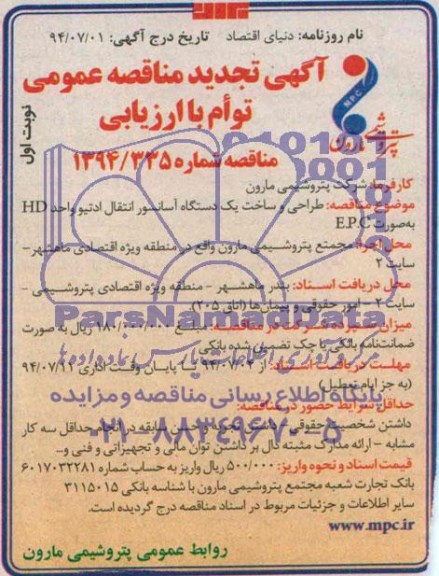 نام روزنامه: دنیای اقتصاد    تاریخ درج آگهی: ۹۴/۰۷/۰۱
آگهی تجدید مناقصه عمومی
توأم با ارزیابی
مناقصه شماره ۱۳۹۴/۳۳۵
نوبت اول
MPC
پتروشیمی مارون
کارفرما: شرکت پتروشیمی مارون
موضوع مناقصه: طراحی و ساخت یک دستگاه آسانسور انتقال ادتیو واحد HD
به‌صورت E.P.C
محل اجرا: مجتمع پتروشیمی مارون واقع در منطقه ویژه اقتصادی ماهشهر -
سایت ۲
محل دریافت اسناد: بندر ماهشهر - منطقه ویژه اقتصادی پتروشیمی -
سایت ۲ - امور حقوقی و پیمان‌ها (اتاق ۲۰۵)
میزان سپرده شرکت در مناقصه: مبلغ ۱۸۰/۰۰۰/۰۰۰ ریال به صورت
ضمانت‌نامه بانکی یا چک تضمین شده بانکی
مهلت دریافت اسناد: از ۹۴/۰۷/۰۲ تا پایان وقت اداری ۹۴/۰۷/۱۱
(به جز ایام تعطیل)
حداقل شرایط حضور در مناقصه:
داشتن شخصیت حقوقی - داشتن تجربه و حسن سابقه در انجام حداقل سه کار
مشابه - ارائه مدارک مثبته دال بر داشتن توان مالی و تجهیزاتی و فنی و-
قیمت اسناد و نحوه واریز: ۵۰۰/۰۰۰ ریال واریز به حساب شماره ۶۰۱۷۰۳۲۲۸۱
بانک تجارت شعبه مجتمع پتروشیمی مارون با شناسه بانکی ۳۱۱۵۰۱۵
سایر اطلاعات و جزئیات مربوط در اسناد مناقصه درج گردیده است.
www.mpc.ir
روابط عمومی پتروشیمی مارون
ParsNamadData
مرکز فرآوری اطلاعات پارس نماد داده‌ها
پایگاه اطلاع رسانی مناقصه و مزایده
۰۲۱-۸۸۳۴۹۶۷۰-۵